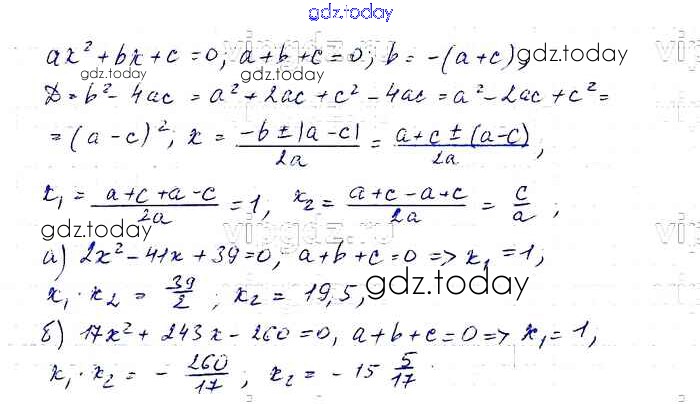 gdz.today
ax² + bx + c = 0; a + b + c = 0; b = -(a + c),
gdz.today
gdz.today
D = b² - 4ac = a² + 2ac + c² - 4ac = a² - 2ac + c² =
= (a - c)²; x = (-b ± |a - c|)/2a = (a + c ± (a - c))/2a,
gdz.today
gdz.today
x₁ = (a + c + a - c)/2a = 1; x₂ = (a + c - a + c)/2a = c/a;
gdz.today
а) 2x² - 41x + 39 = 0, a + b + c = 0 => x₁ = 1;
x₁ · x₂ = 39/2; x₂ = 19,5,
gdz.today
б) 17x² + 243x - 260 = 0, a + b + c = 0 => x₁ = 1,
x₁ · x₂ = - 260/17; x₂ = - 15 5/17
gdz.today
gdz.today